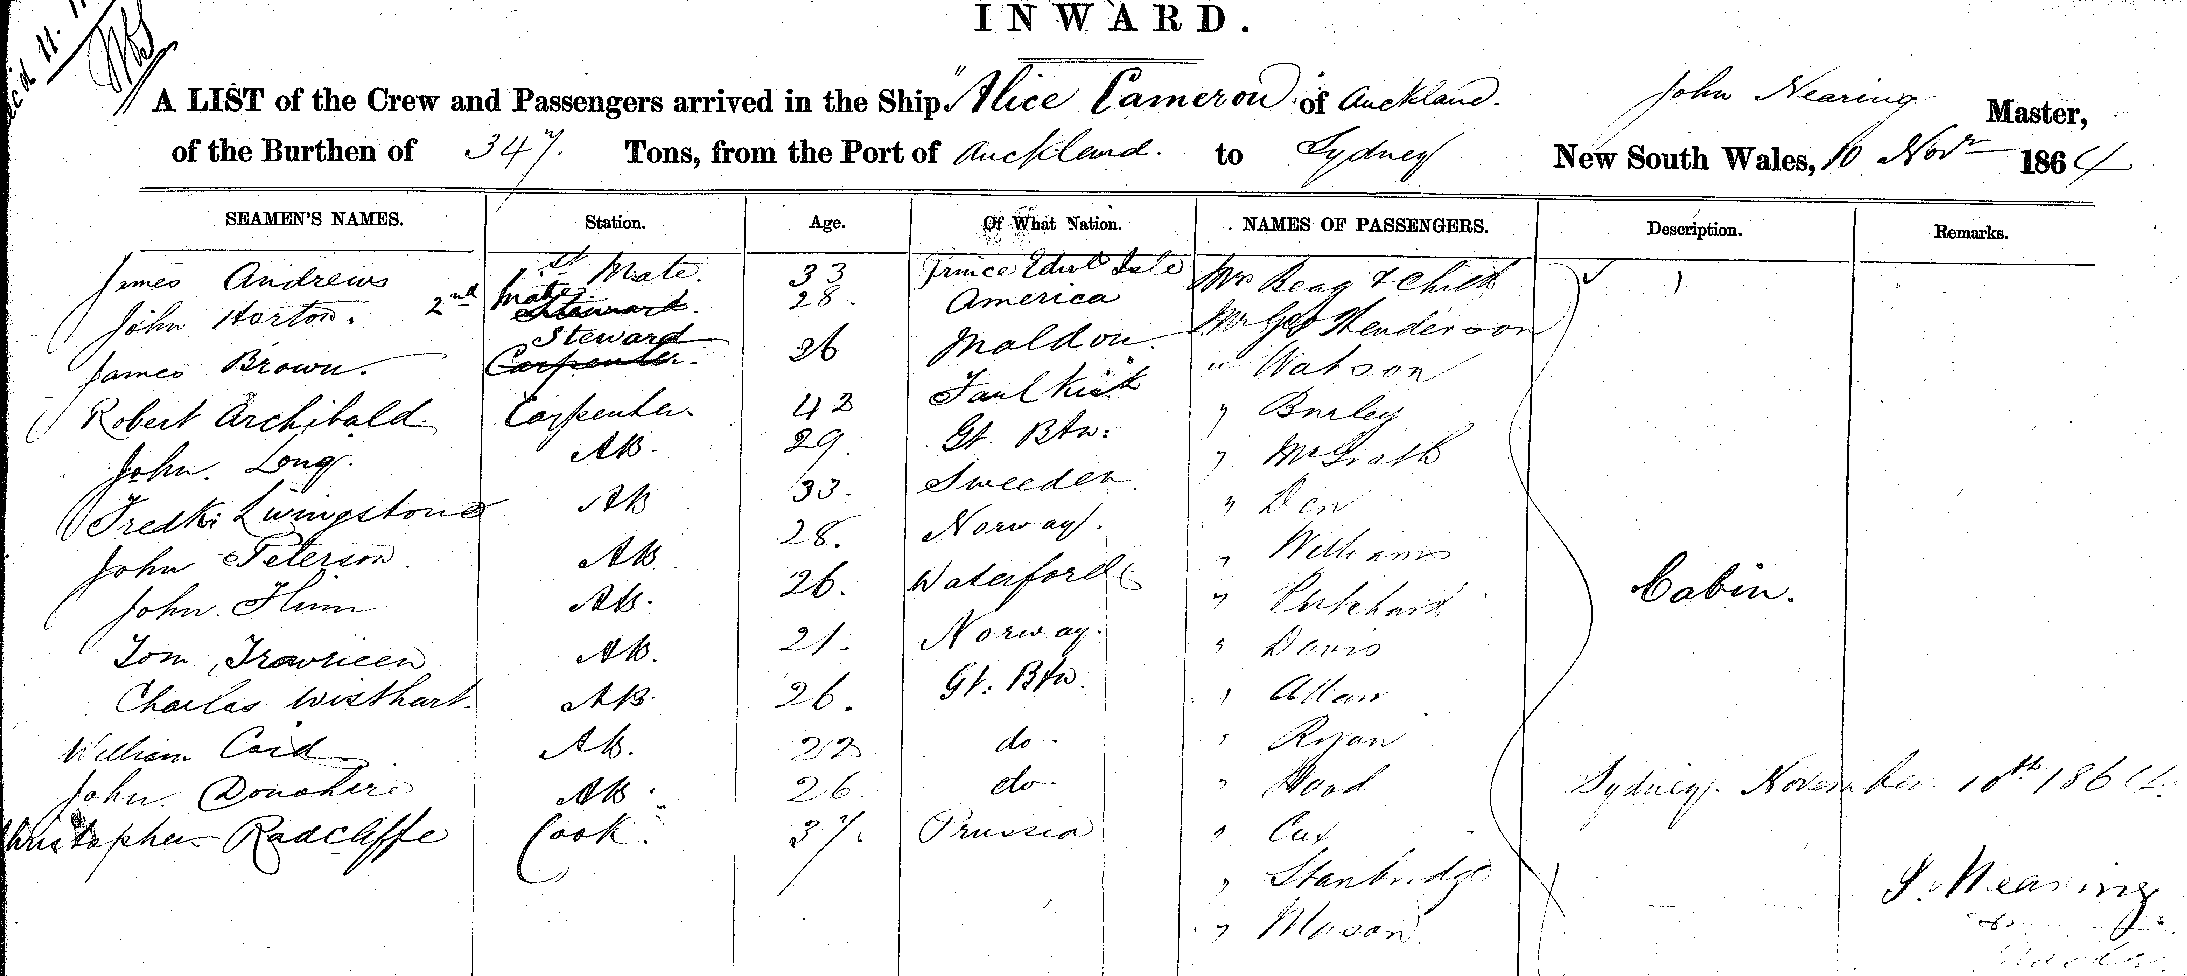 INWARD.
A LIST of the Crew and Passengers arrived in the Ship "Alice Cameron" of Auckland. John Nearing Master,
of the Burthen of 347. Tons, from the Port of Auckland. to Sydney New South Wales, 10 Novr 1864
SEAMEN'S NAMES. Station. Age. Of What Nation. NAMES OF PASSENGERS. Description. Remarks.
James Andrews 1st Mate. 33 Prince Edwd Isle Mrs & Child
John Horton. 2nd Mate Steward. 28. America Mr Geo Henderson
James Brown. Steward Carpenter. 26 Maldon. " Watson
Robert Archibald Carpenter. 42 Faulkirk " Burley
John. Long. AB. 29. Gt. Btn. " McGrath
Fredk. Livingstone AB 33. Sweeden " Den
John Peterson AB 28. Norway. " Williams
John. Flinn AB. 26. Waterford " Pritchard
Tom AB. 21. Norway. " Davis
Charles Wisthart. AB. 26. Gt. Btn. " Allan
William Caid AB. 22 do. " Ryan
John. Donohire AB. 26 do " Hood
Christopher Radcliffe Cook. 37. Prussia " Cux
" Stanbridge
" Mason
Cabin.
Sydney. November 10th 1864.
J. Nearing